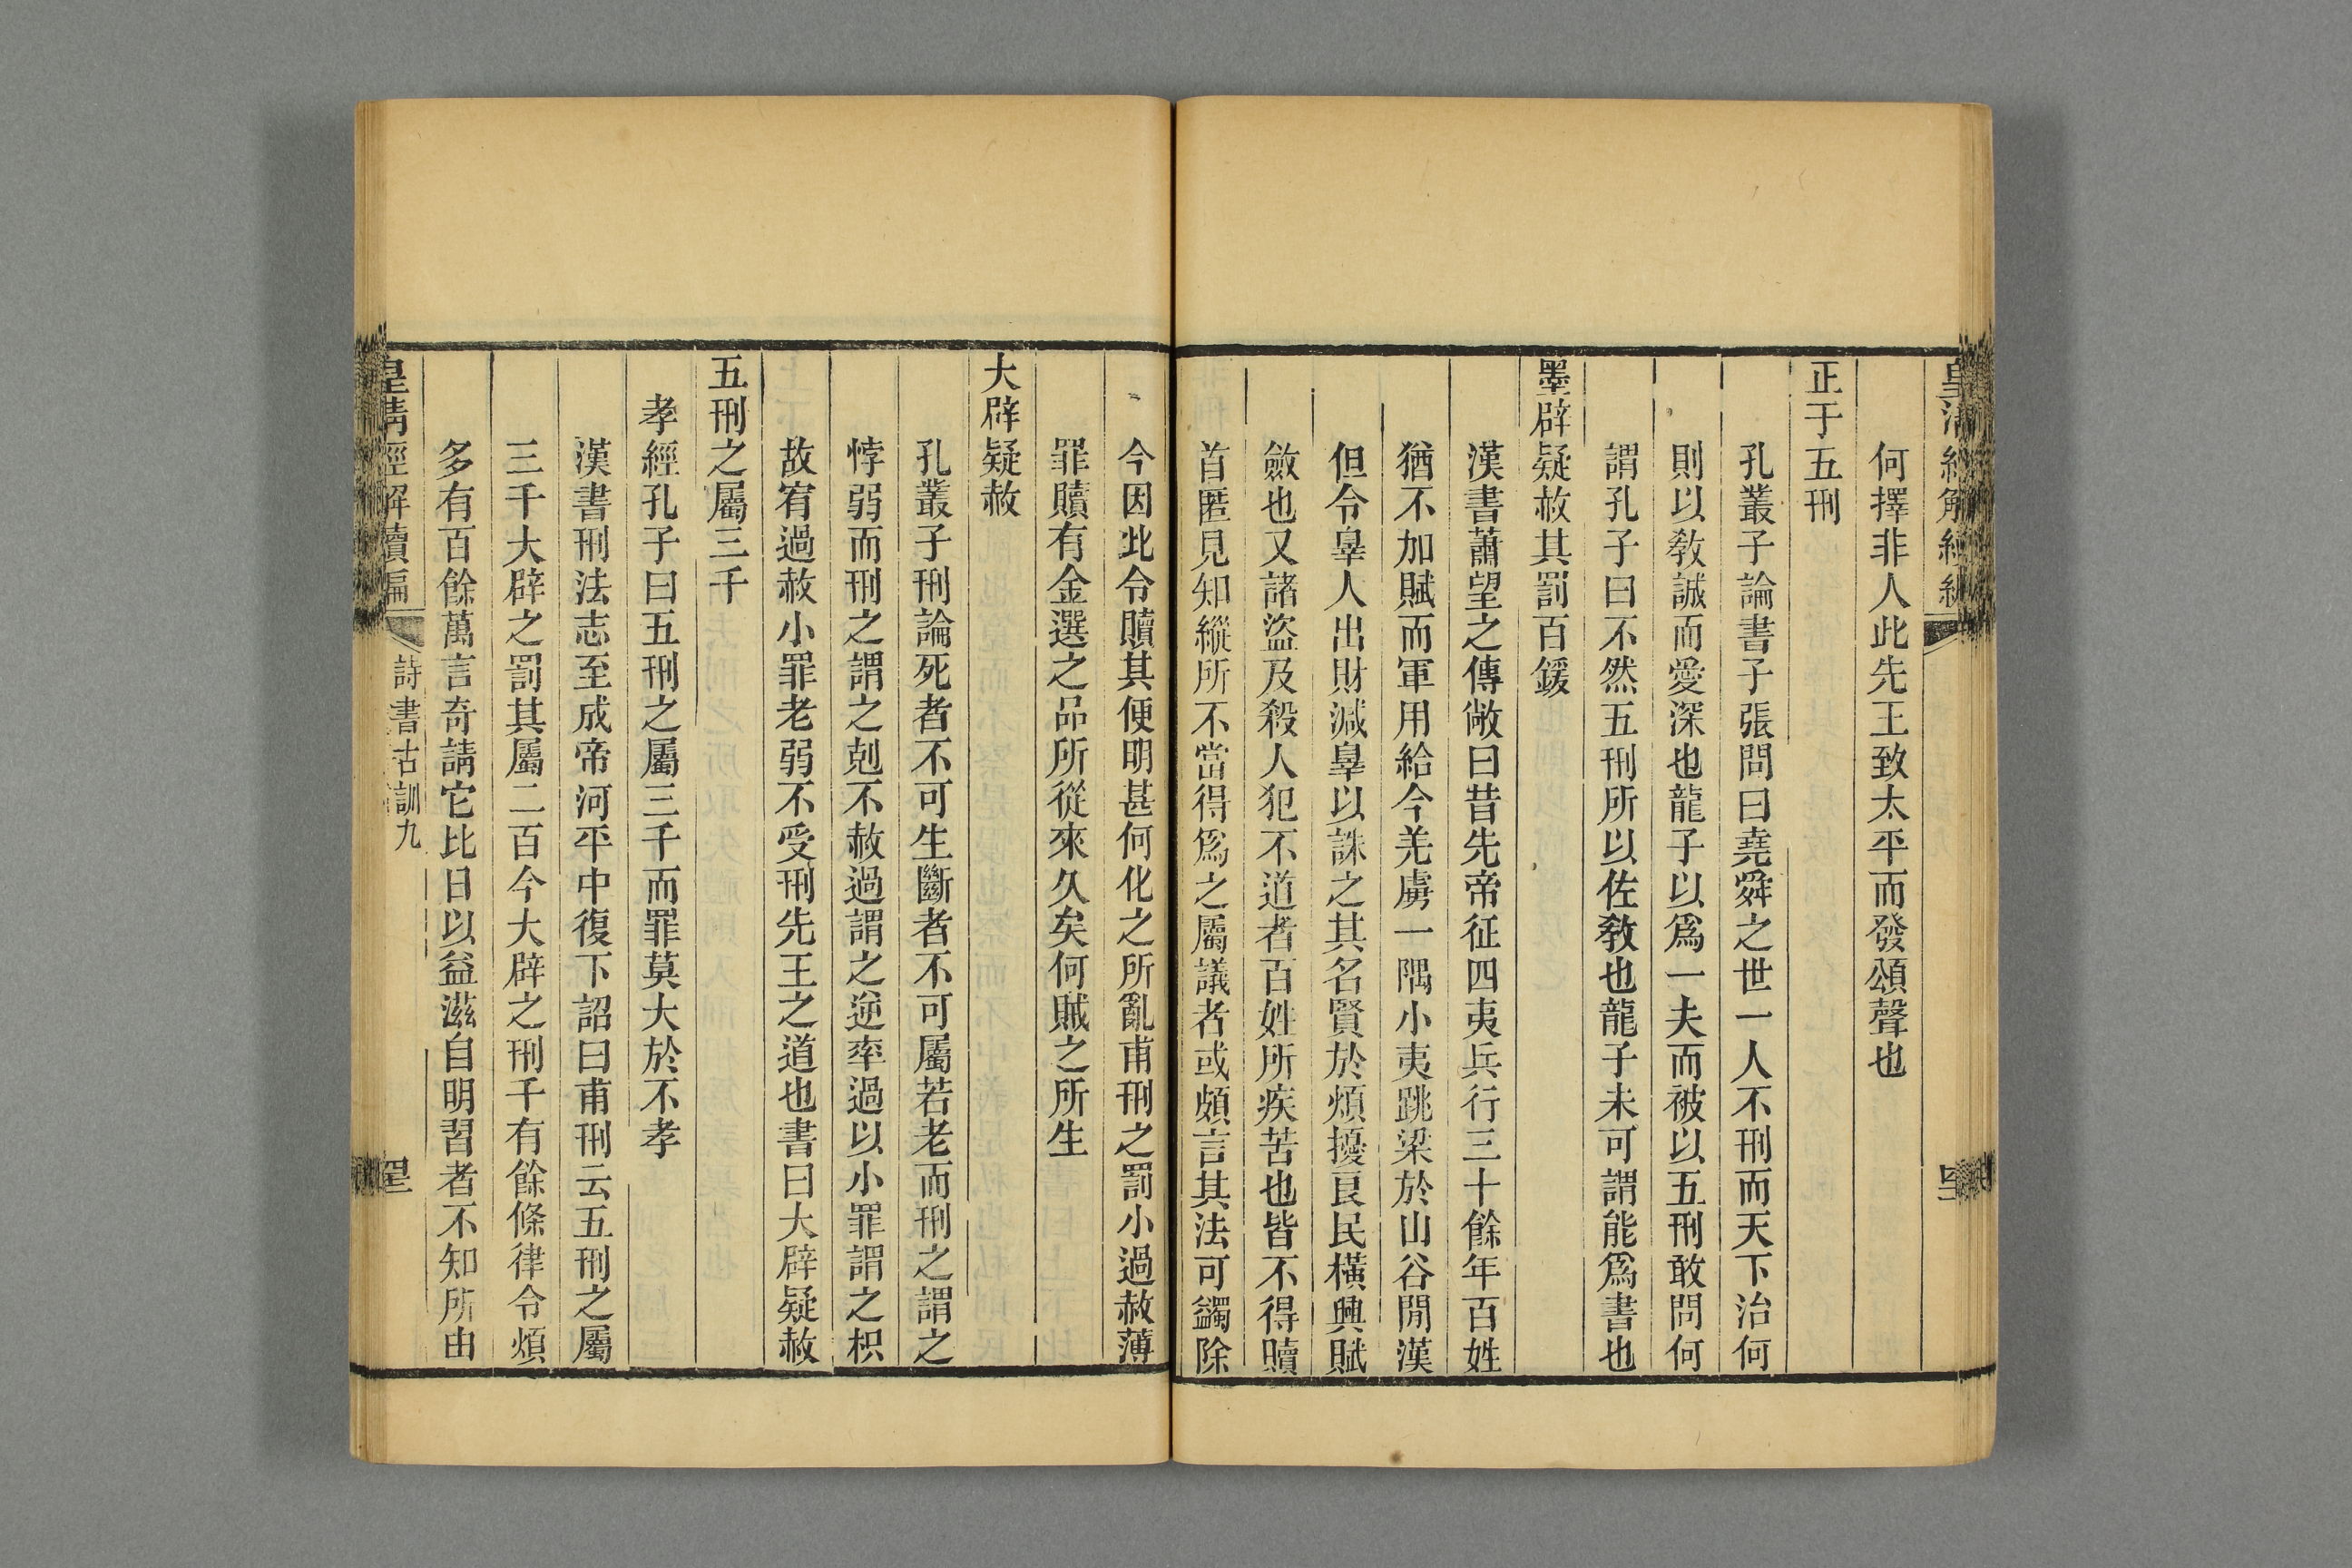 皇清經解續編
何擇非人此先王致太平而發頌聲也
正于五刑
孔叢子論書子張問曰堯舜之世一人不刑而天下治何
則以敎誠而愛深也龍子以爲一夫而被以五刑敢問何
謂孔子曰不然五刑所以佐敎也龍子未可謂能爲書也
墨辟疑赦其罰百鍰
漢書蕭望之傳敞曰昔先帝征四夷兵行三十餘年百姓
猶不加賦而軍用給今羌虜一隅小夷跳梁於山谷閒漢
但令辠人出財減辠以誅之其名賢於煩擾良民橫興賦
斂也又諸盜及殺人犯不道者百姓所疾苦也皆不得贖
首匿見知縱所不當得爲之屬議者或頗言其法可蠲除
今因此令贖其便明甚何化之所亂甫刑之罰小過赦薄
罪贖有金選之品所從來久矣何賊之所生
大辟疑赦
孔叢子刑論死者不可生斷者不可屬若老而刑之謂之
悖弱而刑之謂之剋不赦過謂之逆率過以小罪謂之枳
故宥過赦小罪老弱不受刑先王之道也書曰大辟疑赦
五刑之屬三千
孝經孔子曰五刑之屬三千而罪莫大於不孝
漢書刑法志至成帝河平中復下詔曰甫刑云五刑之屬
三千大辟之罰其屬二百今大辟之刑千有餘條律令煩
多有百餘萬言奇請它比日以益滋自明習者不知所由
皇清經解續編
詩書古訓九